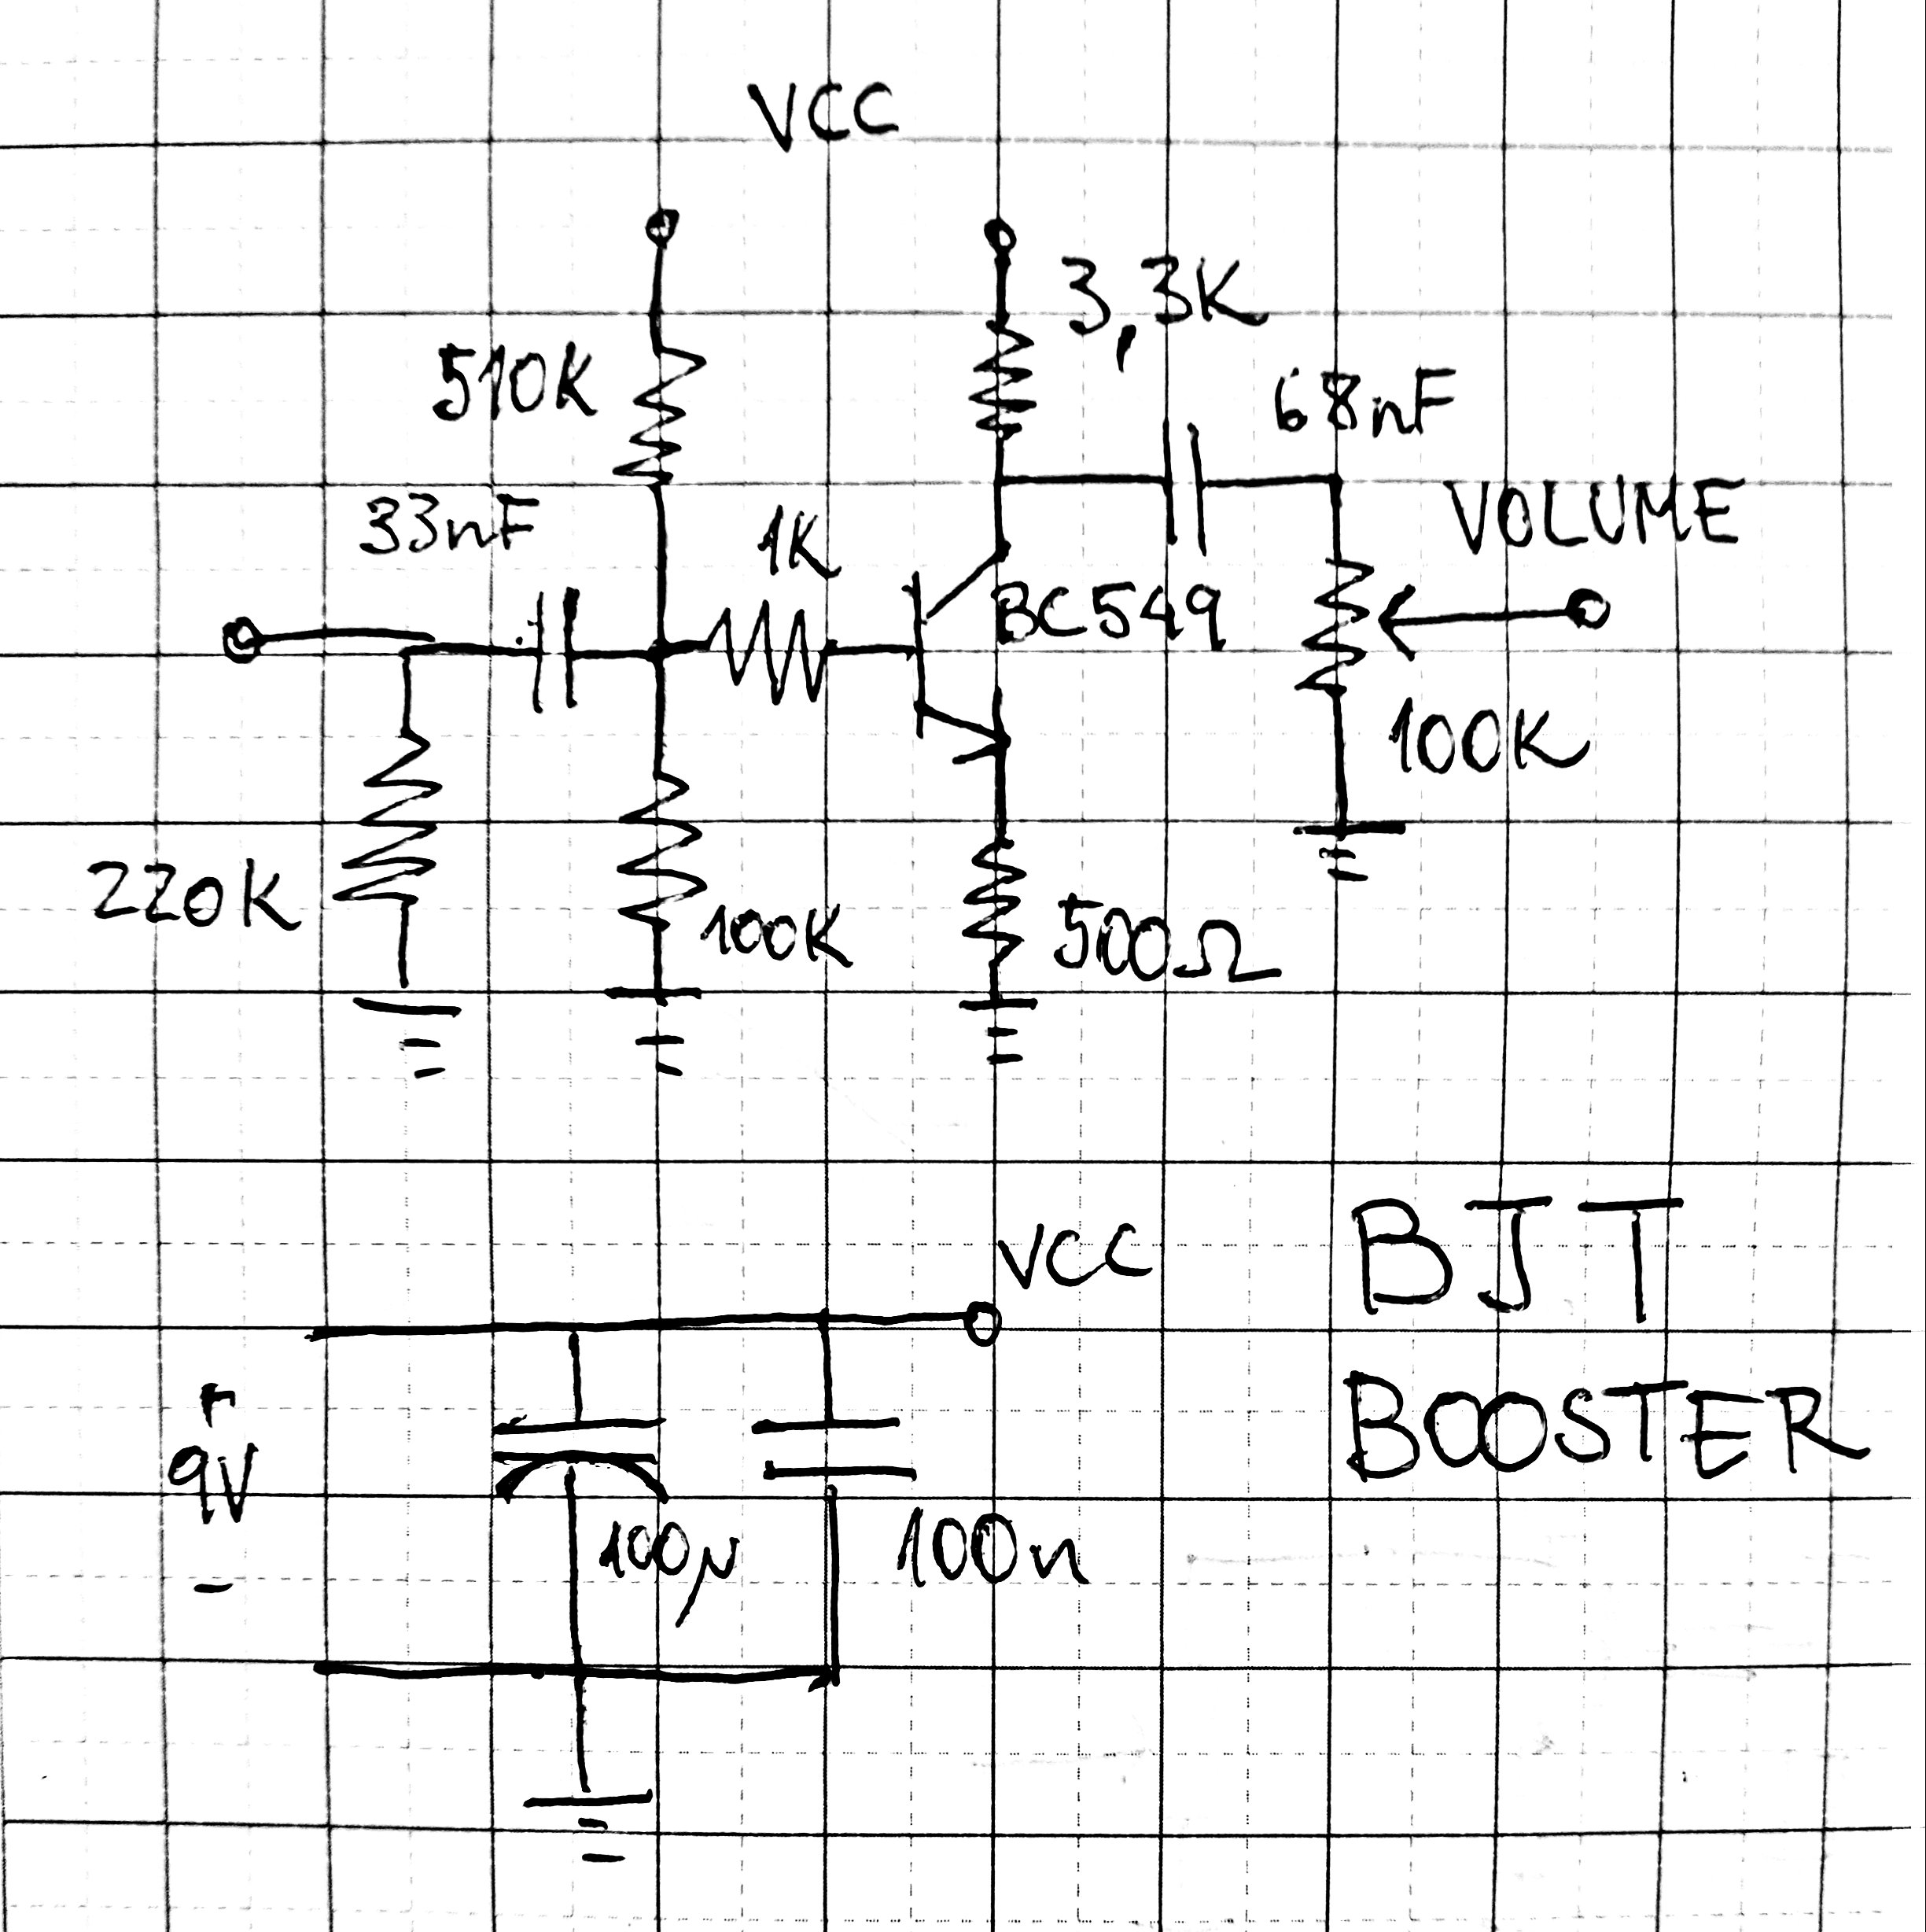 VCC
3,3K
510K
68nF
33nF
1K
VOLUME
BC549
100K
220K
100K
500Ω
VCC
BJT
BOOSTER
+
9V
-
100µ
100n